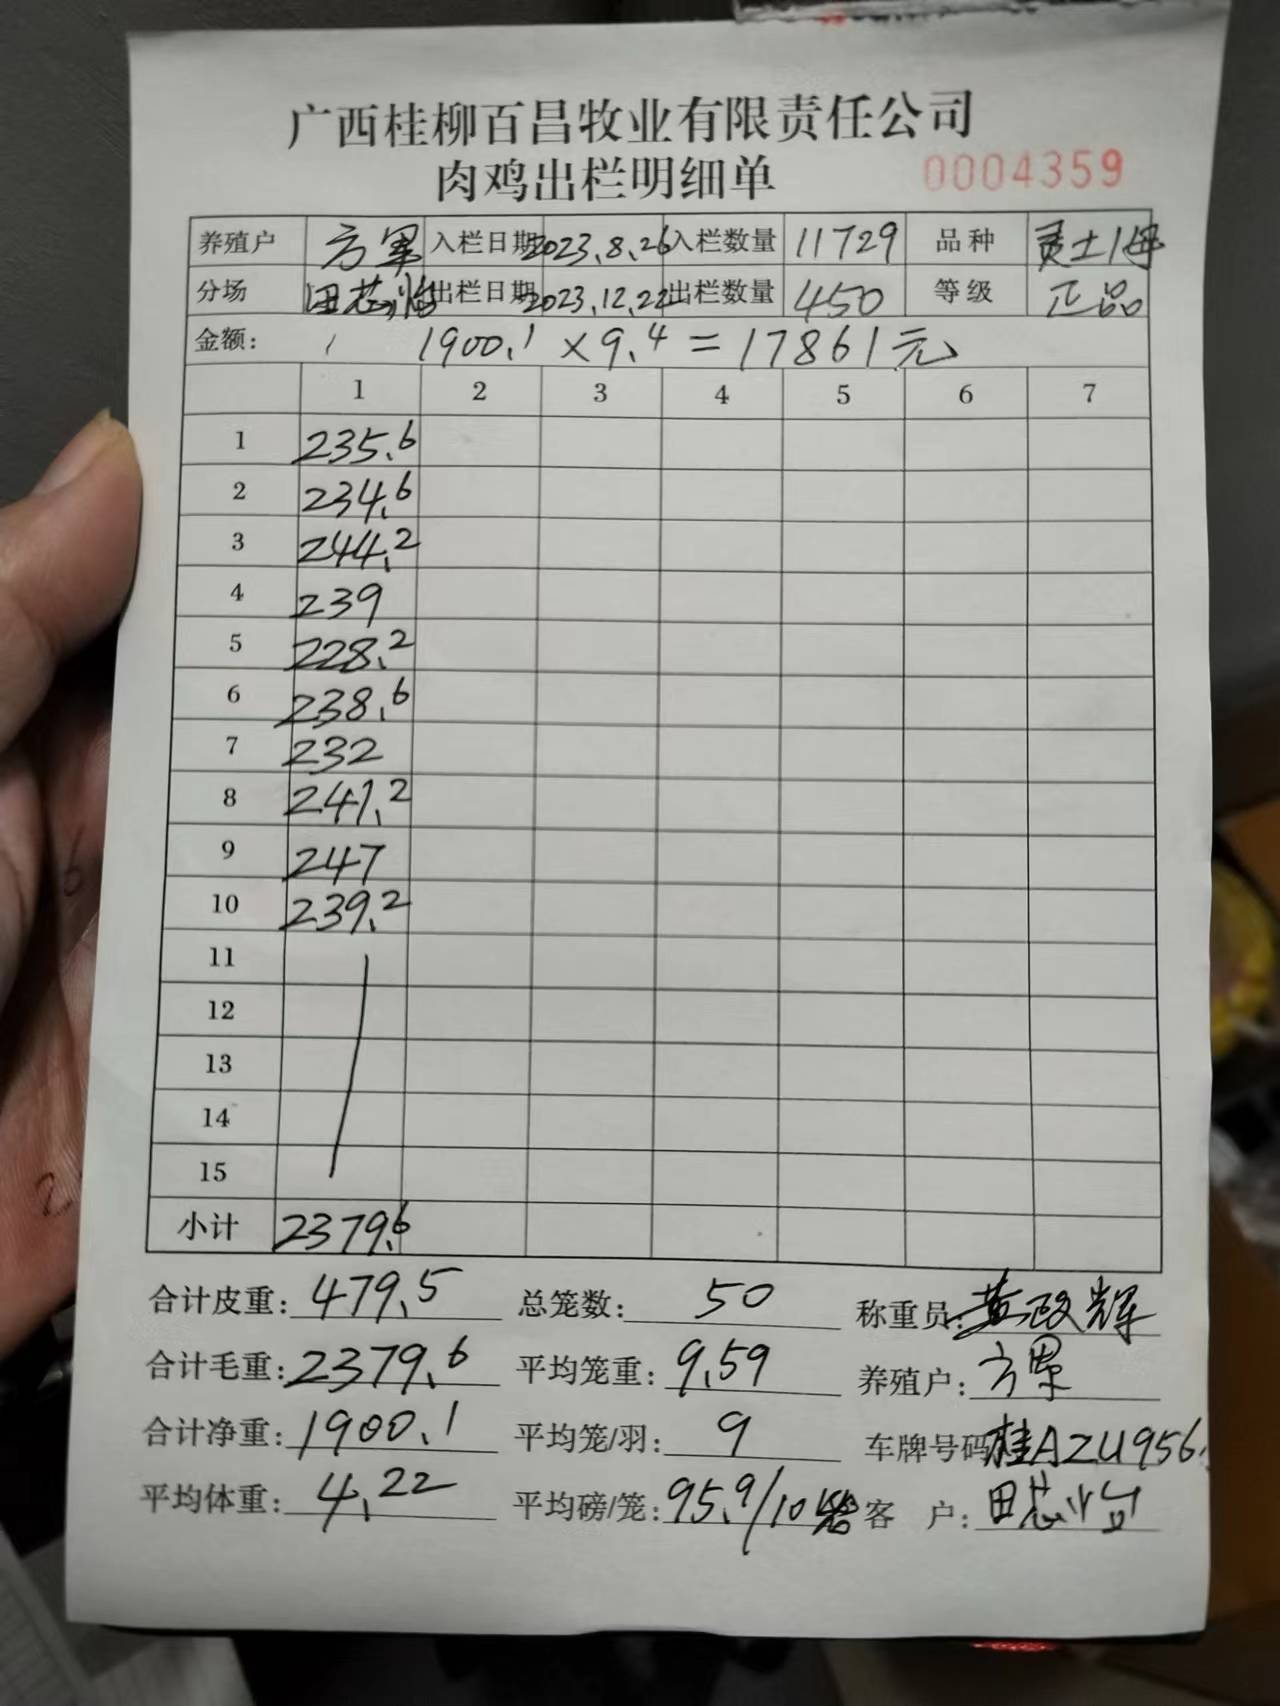 广西桂柳百昌牧业有限责任公司
肉鸡出栏明细单 0004359
养殖户 方军 入栏日期 2023.8.26 入栏数量 11729 品种
分场 田芯怡 出栏日期 2023.12.22 出栏数量 450 等级 正品
金额: 1900.1 × 9.4 = 17861元
1 2 3 4 5 6 7
1 235.6
2 234.6
3 244.2
4 239
5 228.2
6 238.6
7 232
8 241.2
9 247
10 239.2
11
12
13
14
15
小计 2379.6
合计皮重: 479.5 总笼数: 50 称重员: 黄政辉
合计毛重: 2379.6 平均笼重: 9.59 养殖户: 方军
合计净重: 1900.1 平均笼/羽: 9 车牌号码 桂AZU956
平均体重: 4.22 平均磅/笼: 95.9/10 客 户: 田芯怡